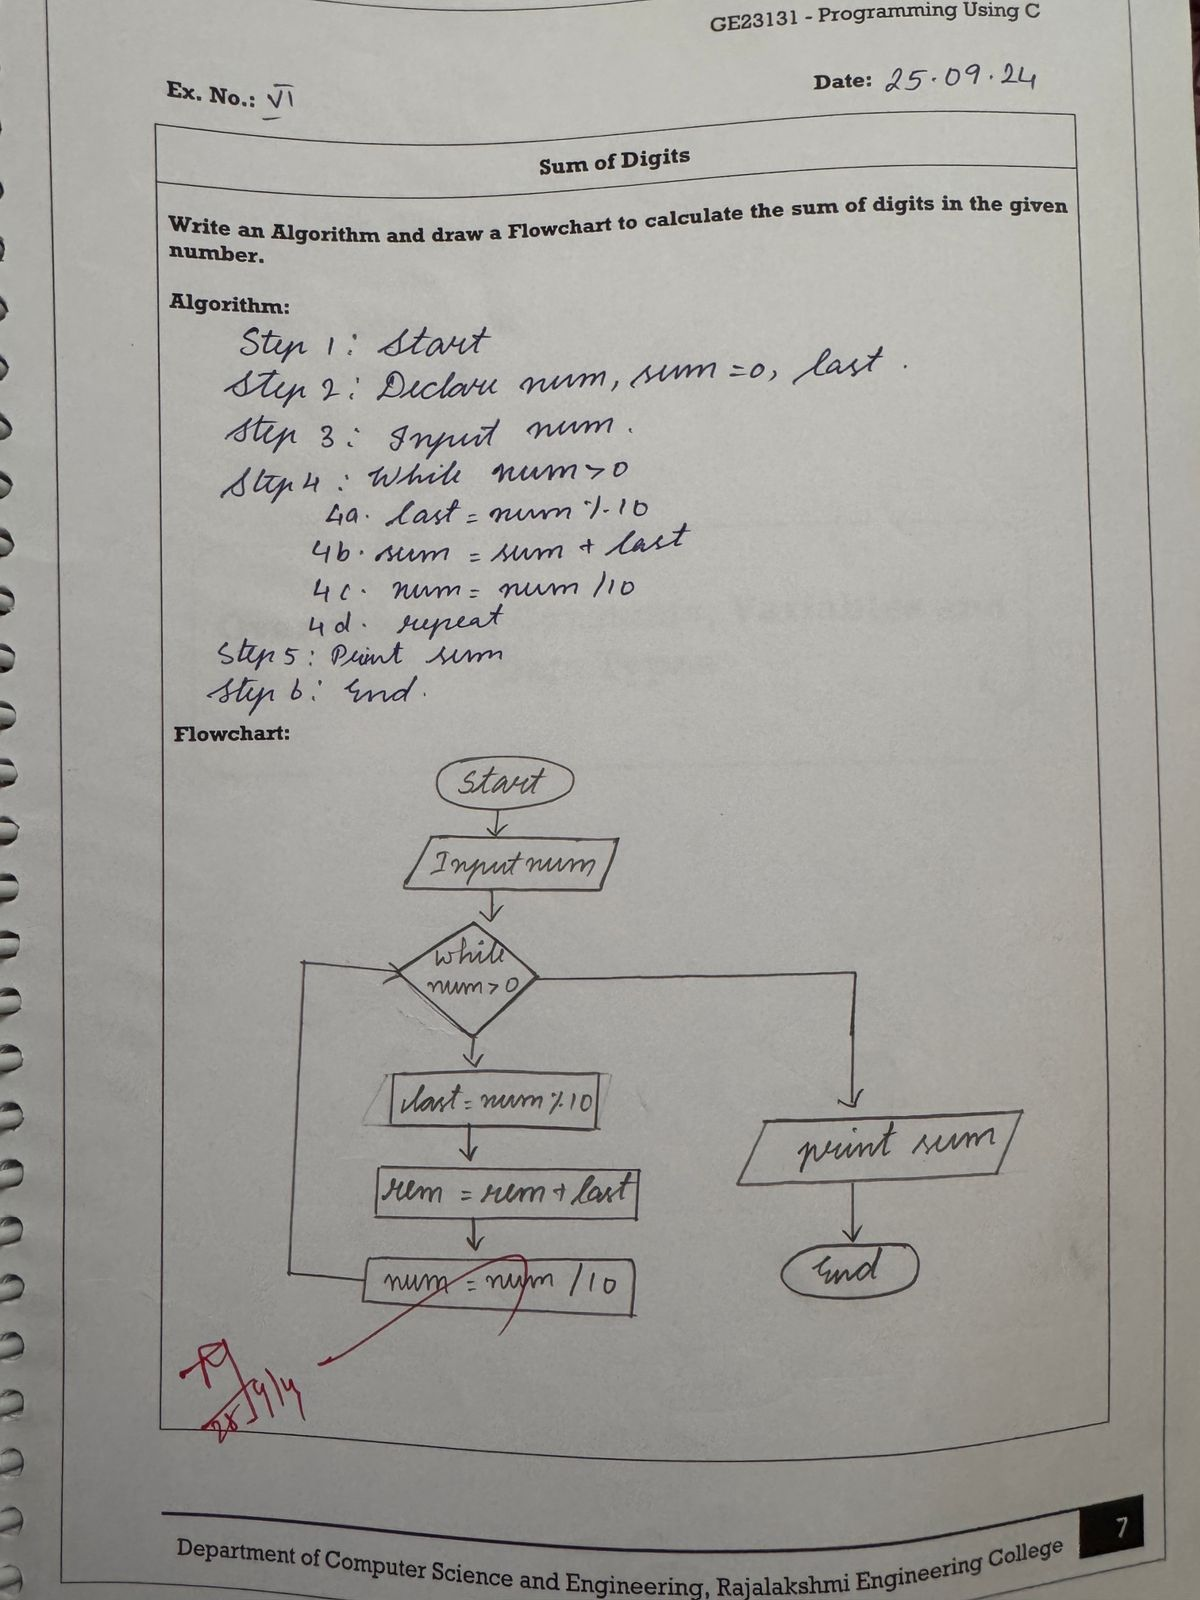 GE23131 - Programming Using C
Ex. No.: VI
Date: 25.09.24
Sum of Digits
Write an Algorithm and draw a Flowchart to calculate the sum of digits in the given
number.
Algorithm:
Step 1: Start
Step 2: Declare num, sum =0, last.
Step 3: Input num.
Step 4: While num>0
4a. last = num % 10
4b. sum = sum + last
4c. num = num /10
4d. repeat
Step 5: Print sum
Step 6: End.
Flowchart:
Start
Input num
while
num>0
last = num % 10
rem = rem + last
num = num /10
print sum
End
Department of Computer Science and Engineering, Rajalakshmi Engineering College
7